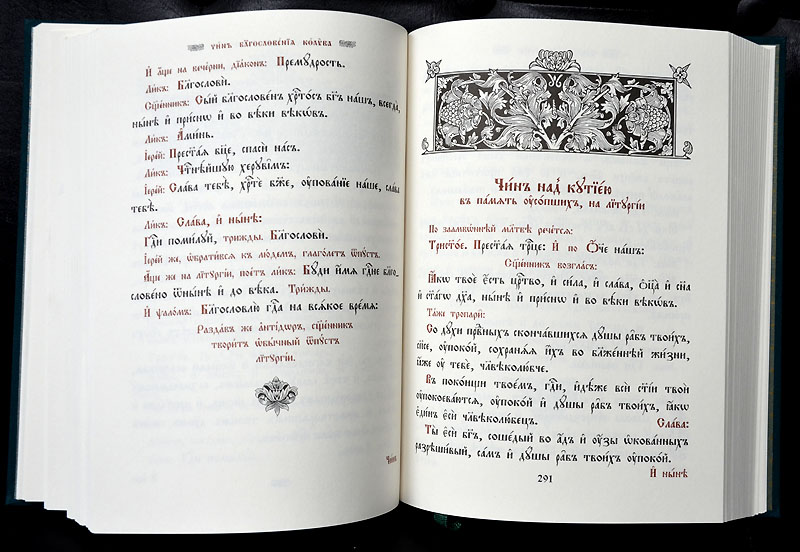 Чи́нъ бл҃гослове́нїѧ ко́лѵва
И҆ а҆́ще на вече́рни, дїа́конъ: Премꙋ́дрость.
Ли́къ: Бл҃гословѝ.
Сщ҃е́нникъ: Сы́й бл҃гослове́нъ хрⷭ҇то́съ бг҃ъ на́шъ, всегда̀,
ны́нѣ и҆ при́снѡ и҆ во вѣ́ки вѣкѡ́въ.
Ли́къ: А҆ми́нь.
І҆ере́й: Прест҃а́ѧ бц҃е, спасѝ на́съ.
Ли́къ: Чⷭ҇тнѣ́йшꙋю херꙋві̑мъ:
І҆ере́й: Сла́ва тебѣ̀, хрⷭ҇тѐ бж҃е, ᲂу҆пова́нїе на́ше, сла́ва
тебѣ̀.
Ли́къ: Сла́ва, и҆ ны́нѣ:
Гдⷭ҇и поми́лꙋй, три́жды. Бл҃гословѝ.
І҆ере́й же, ѡ҆брати́всѧ къ лю́демъ, глаго́летъ ѿпꙋ́стъ.
А҆́ще же на лїтꙋргі́и, пое́тъ ли́къ: Бꙋ́ди и҆́мѧ гдⷭ҇не бл҃го-
слове́но ѿны́нѣ и҆ до вѣ́ка. Три́жды.
И҆ ѱало́мъ: Бл҃гословлю̀ гдⷭ҇а на всѧ́кое вре́мѧ:
Разда́въ же а҆нтїдѡ́ръ, сщ҃е́нникъ
твори́тъ ѡ҆бы́чный ѿпꙋ́стъ
лїтꙋргі́и.
Чи́нъ
Чи́нъ над̾ кꙋтїе́ю
въ па́мѧть ᲂу҆со́пшихъ, на лїтꙋргі́и
По заамвѡ́ннѣй мл҃твѣ рече́тсѧ:
Трист҃о́е. Прест҃а́ѧ трⷪ҇це: И҆ по Ѻ҆́ч҃е на́шъ:
Сщ҃е́нникъ возгла́съ:
Ꙗ҆́кѡ твоѐ є҆́сть црⷭ҇тво, и҆ си́ла, и҆ сла́ва, ѻ҆ц҃а̀ и҆ сн҃а
и҆ ст҃а́гѡ дх҃а, ны́нѣ и҆ при́снѡ и҆ во вѣ́ки вѣкѡ́въ.
Та́же тропарѝ:
Со дꙋ́хи првⷣныхъ сконча́вшихсѧ дꙋ́шы ра̑бъ твои́хъ,
сп҃се, ᲂу҆поко́й, сохранѧ́ѧ и҆̀хъ во бл҃же́ннѣй жи́зни,
ꙗ҆́же ᲂу҆ тебє̀, чл҃вѣколю́бче.
В поко́ищи твое́мъ, гдⷭ҇и, и҆дѣ́же всѝ ст҃і́и твоѝ
ᲂу҆поко́еваютсѧ, ᲂу҆поко́й и҆ дꙋ́шы ра̑бъ твои́хъ, ꙗ҆́кѡ
є҆ди́нъ є҆сѝ чл҃вѣколю́бецъ.
Сла́ва:
Ты̀ є҆сѝ бг҃ъ, соше́дый во а҆́дъ и҆ ᲂу҆́зы ѡ҆кова́нныхъ
разрѣши́вый, са́мъ и҆ дꙋ́шы ра̑бъ твои́хъ ᲂу҆поко́й.
291
И҆ ны́нѣ